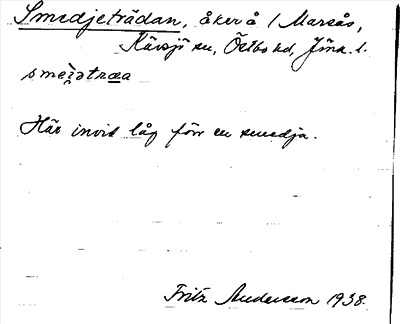 Smedjeträdan, åker å 1 Marsås,
Kävsjö sn, Östbo hd, Jönk. l.
Här invid låg förr en smedja.
Fritz Andersson 1938.